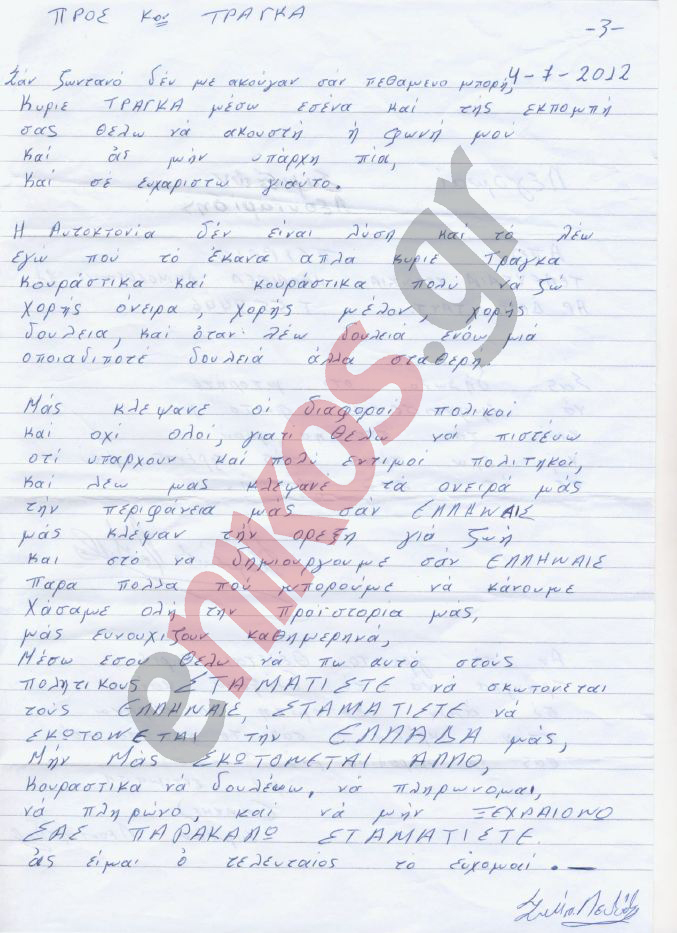 ΠΡΟΣ κον ΤΡΑΓΚΑ
-3-
Σάν ζωντανό δέν με ακούγαν σάν πεθαμενο μπορή, 4-7-2012
Κυριε ΤΡΑΓΚΑ μέσω εσένα καί τής εκπομπή
σας θέλω νά ακουστή ή φωνή μού
καί άς μήν υπάρχη πία,
και σέ ευχαριστώ γιαύτο.
Η Αυτοκτονία δέν είναι λύση καί τό λέω
εγώ πού τό έκανα απλα κυριε Τράγκα
κουράστικα καί κουράστικα πολύ νά ζώ
χορής όνειρα, χορής μέλον, χορής
δουλεια, καί όταν λέω δουλειά ενόω μιά
οποιαδιποτέ δουλειά άλλα σταθερη.
Μάς κλεψανε οι διαφοροί πολικοί
και οχί ολοί, γιατι θελω νά πιστέυω
οτί υπαρχουν καί πολύ εντιμοί πολιτηκοι,
και λεω μας κλέψανε τά ονειρά μάς
τήν περιφάνεια μάς σάν ΕΛΛΗΝΑΙΣ
μάς κλέψαν τήν ορεξη γιά ζωή
και στό να δημιουργουμε σάν ΕΛΛΗΝΑΙΣ
Παρα πολλα πού μπορούμε νά κάνουμε
Χάσαμε ολή την προϊστορια μάς,
μάς ευνουχιζουν καθημερηνά,
Μέσω εσου θελω νά πω αυτό στούς
πολητικους ΣΤΑΜΑΤΙΣΤΕ νά σκωτονεται
τούς ΕΛΛΗΝΑΙΣ, ΣΤΑΜΑΤΙΣΤΕ νά
ΣΚΩΤΟΝΕΤΑΙ τήν ΕΛΛΑΔΑ μάς,
Μήν Μάς ΣΚΩΤΟΝΕΤΑΙ ΑΛΛΟ,
κουραστικα νά δουλέψω, νά πληρωνομαι,
νά πληρώνο, καί νά μήν ΞΕΧΡΑΙΟΝΟ
ΣΑΣ ΠΑΡΑΚΑΛΩ ΣΤΑΜΑΤΙΣΤΕ.
άς είμαι ό τελευταίος το ευχομαί.
enikos.gr